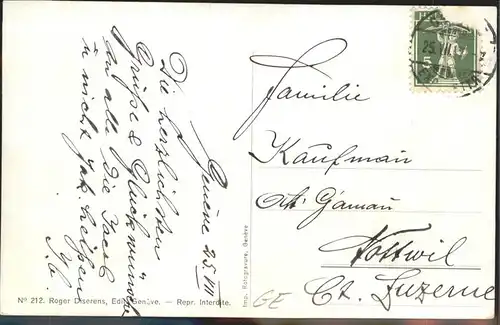 Genève 25. VII
Die herzlichsten
Grüße & Glückwünsche
an alle die Jacob
u nicht Jak. heißen
Familie
Kaufman
Nottwil
Ct. Luzerne
GE
5
25. VII.
Nº 212. Roger Diserens, Edit. Genève. — Repr. Interdite.
Imp. Rotogravure, Genève